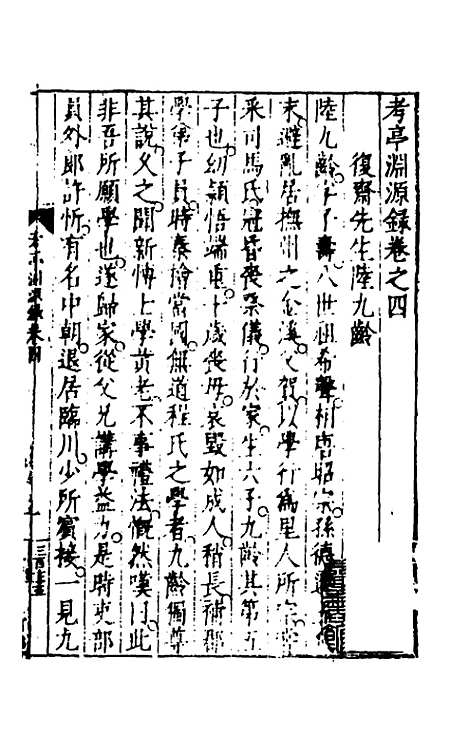 考亭淵源錄卷之四
復齋先生陸九齡
陸九齡字子壽八世祖希聲相唐昭宗孫德遷
末避亂居撫州之金溪父賀以學行為里人所宗
采司馬氏冠昏喪祭儀行於家生六子九齡其第五
子也幼穎悟端重十歲喪母哀毀如成人稍長補郡
學弟子員時秦檜當國無道程氏之學者九齡獨尊
其說久之聞新博士學黃老不事禮法慨然嘆曰此
非吾所願學也遂歸家從父兄講學益力是時吏部
員外郎許忻有名中朝退居臨川少所賓接一見九
考亭淵源錄卷四